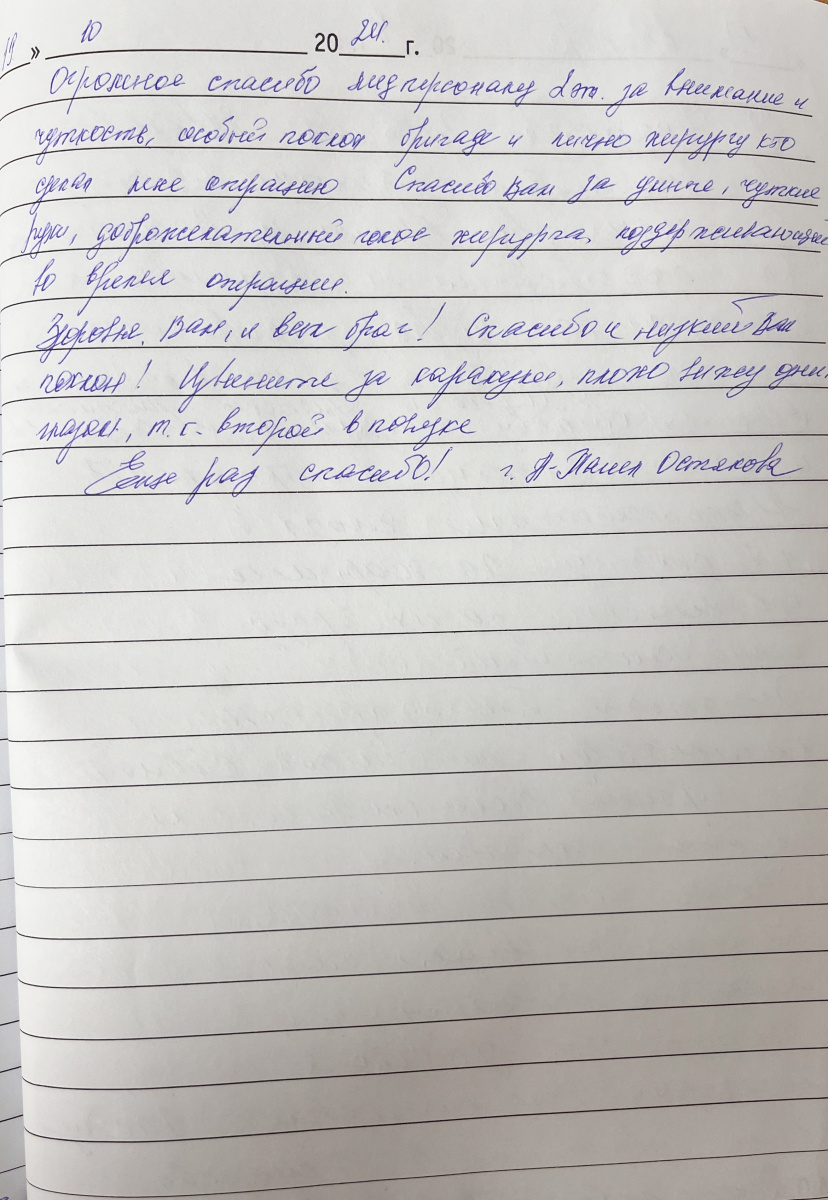 19 » 10 2024 г.
Огромное спасибо медперсоналу 2 эт. за внимание и
чуткость, особый поклон бригаде и лично хирургу кто
сделал мне операцию Спасибо Вам за умные, чуткие
руки, доброжелательный голос хирурга, поддерживающий
во время операции.
Здоровья Вам, и всех благ! Спасибо и низкий Вам
поклон! Извините за каракули, плохо вижу одним
глазом, т.к. второй в повязке
Еще раз спасибо! г. А-